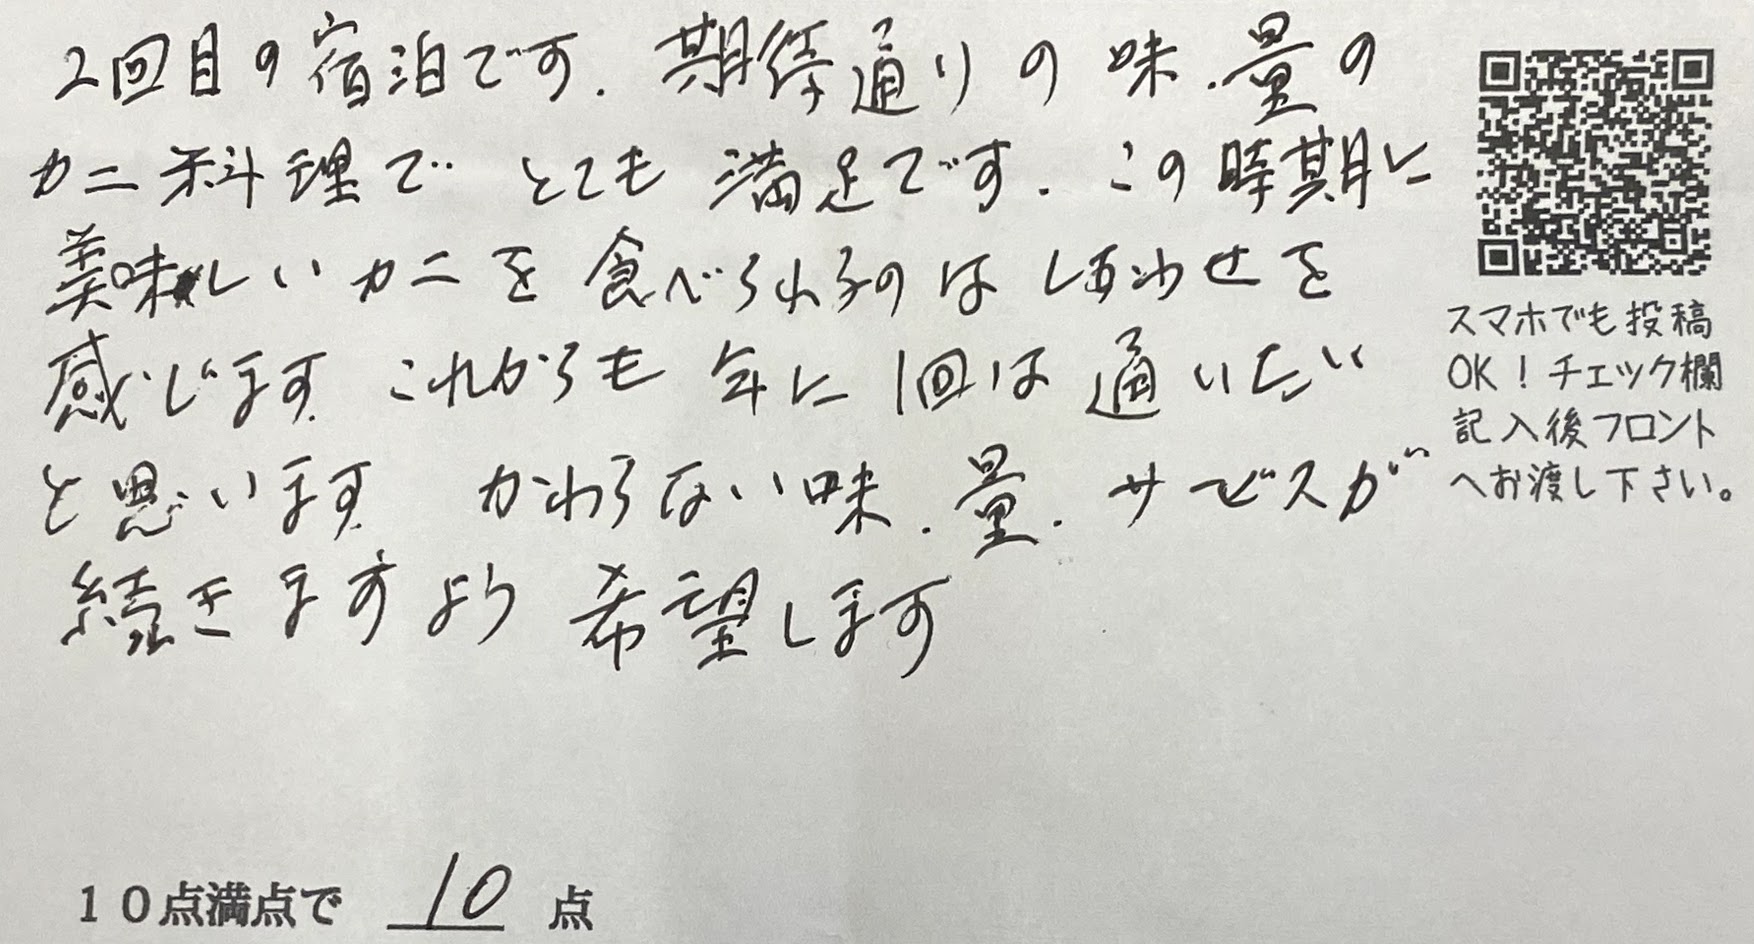 2回目の宿泊です.期待通りの味.量の
カニ料理でとても満足です.この時期に
美味しいカニを食べられるのはしあわせを
感じます.これからも年に1回は通いたい
と思います.かわらない味.量.サービスが
続きますよう希望します
スマホでも投稿
OK!チェック欄
記入後フロント
へお渡し下さい。
10点満点で 10 点